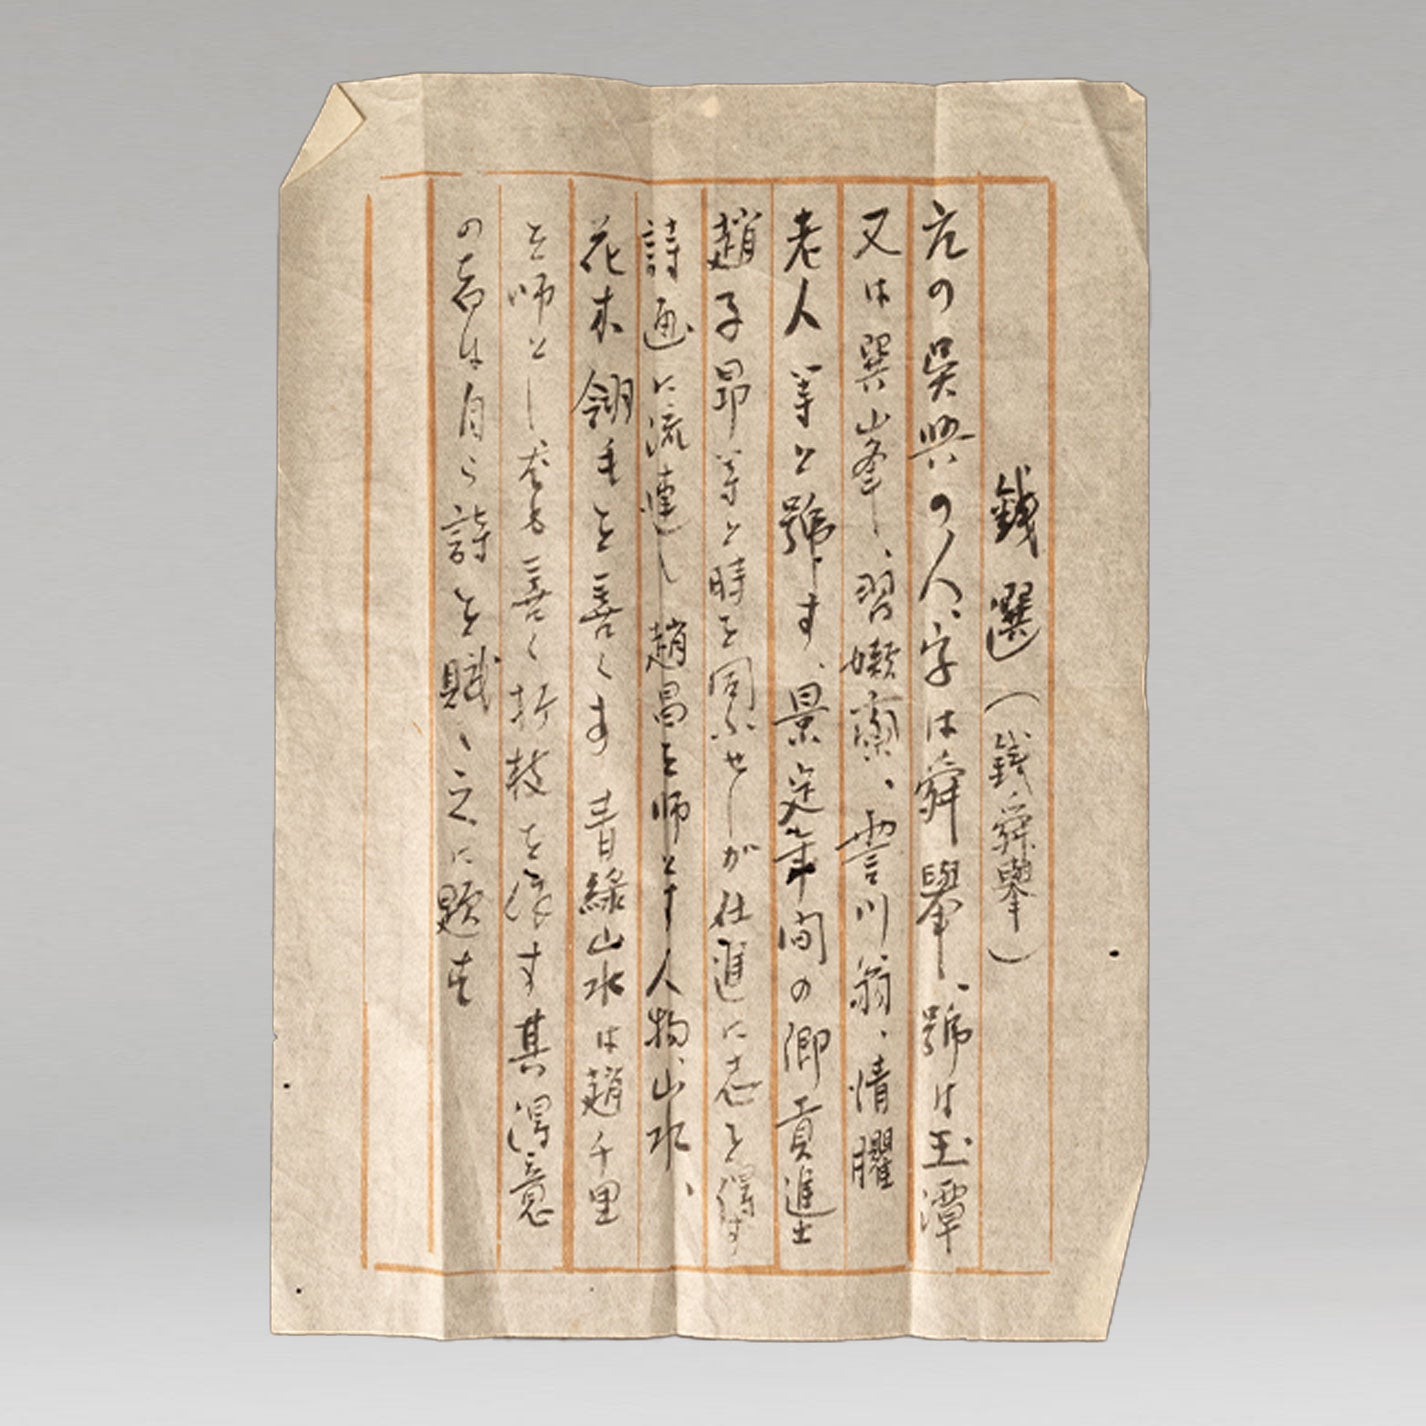 錢選（錢舜擧）
元の吳興の人、字は舜擧、號は玉潭
又は巽山峯、習嬾齋、霅川翁、清臞
老人等と號す、景定年間の鄕貢進士
趙子昂等と時を同ふせしが仕進に志を得す
詩画に流連し趙昌を師とす人物、山水、
花木翎毛を善くす靑綠山水は趙千里
を師とし尤も善く折枝を作す其得意
の者は自ら詩を賦し之に題す